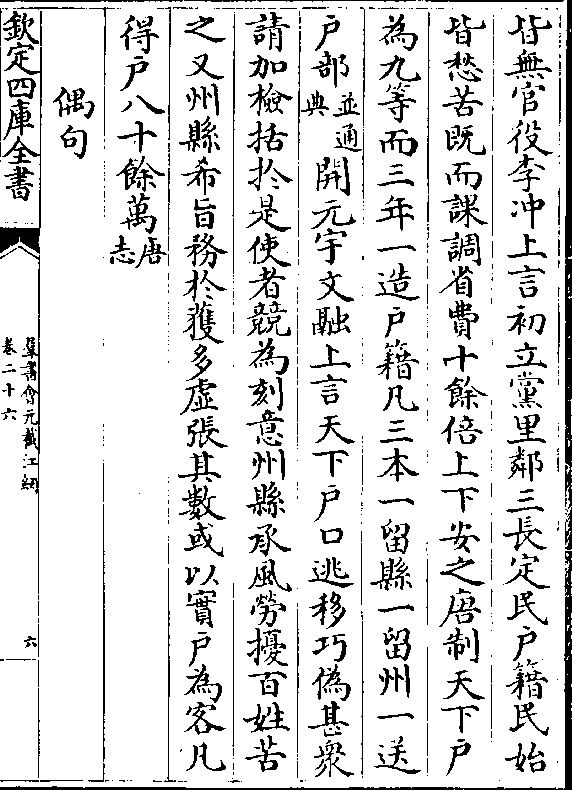 皆無官役李冲上言初立黨里鄰三長定民户籍民始
皆愁苦既而課調省費十餘倍上下安之唐制天下户
為九等而三年一造户籍凡三本一留縣一留州一送
户部並通典開元宇文融上言天下户口逃移巧偽甚衆
請加檢括於是使者競為刻意州縣承風勞擾百姓苦
之又州縣希旨務於獲多虛張其數或以實户為客凡
得户八十餘萬唐志
偶句
欽定四庫全書
羣書會元截江網
卷二十六
六